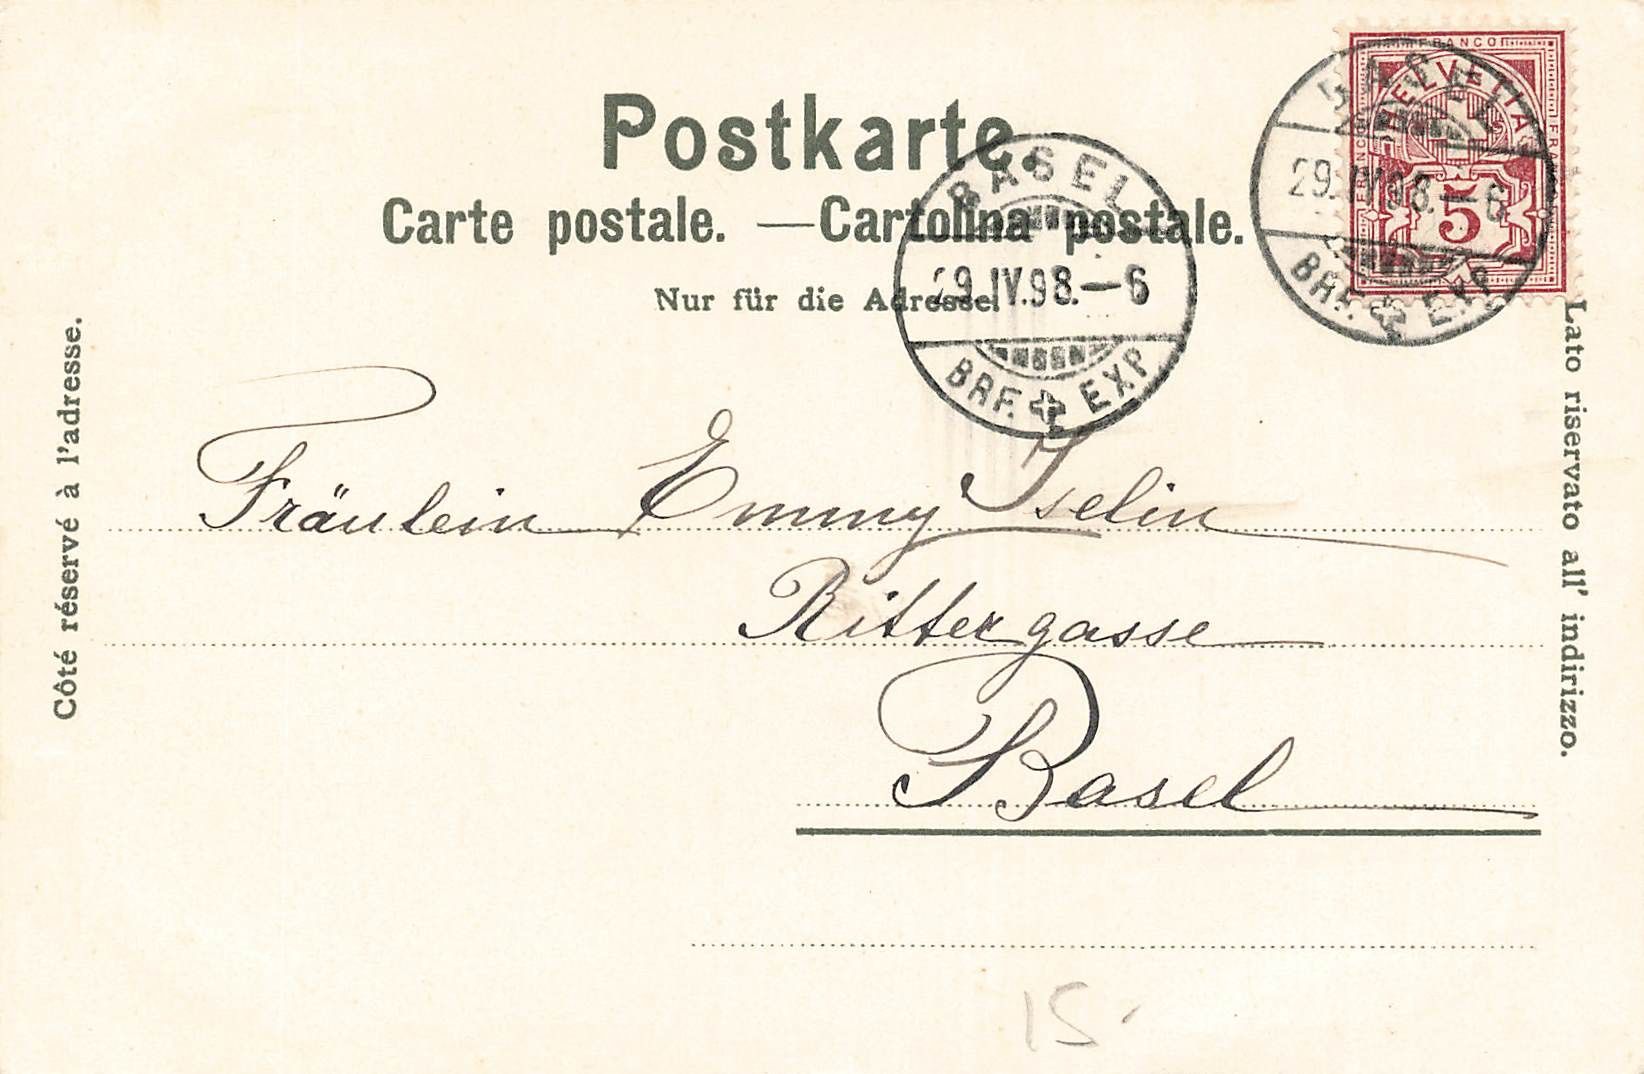 Postkarte.
Carte postale. — Cartolina postale.
Nur für die Adresse.
Côté réservé à l'adresse.
Lato riservato all' indirizzo.
FRANCO
HELVETIA
5
BASEL
29.IV.98.—6
BRF. EXP.
BASEL
29.IV.98.—6
BRF. EXP
Fräulein Emmy Iselin
Rittergasse
Basel
15.